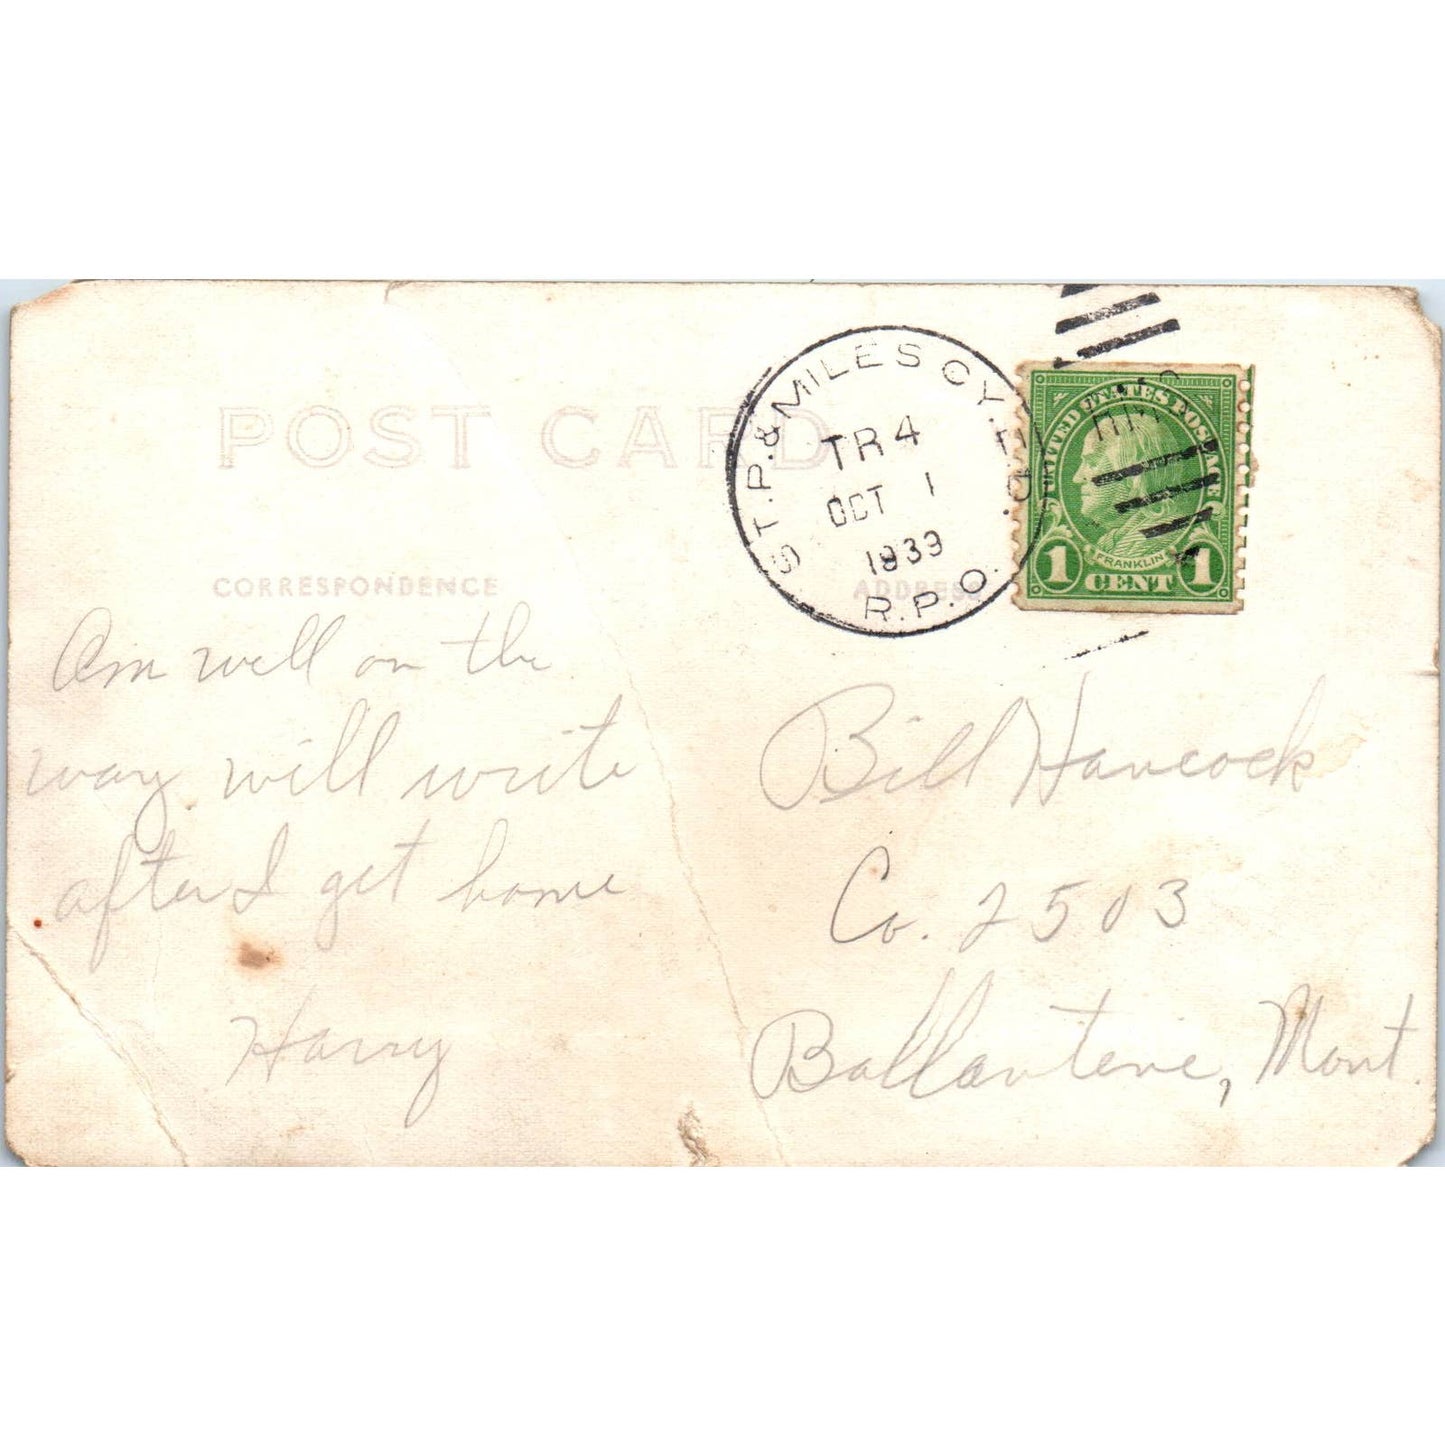 POST CARD
ST.P. & MILES CY. E.D.
TR 4
OCT 1
1939
R.P.O.
UNITED STATES POSTAGE
FRANKLIN
1 CENT 1
CORRESPONDENCE
ADDRESS
Am well on the
way will write
after I get home
Harry
Bill Hancock
Co. 2503
Ballantine, Mont.